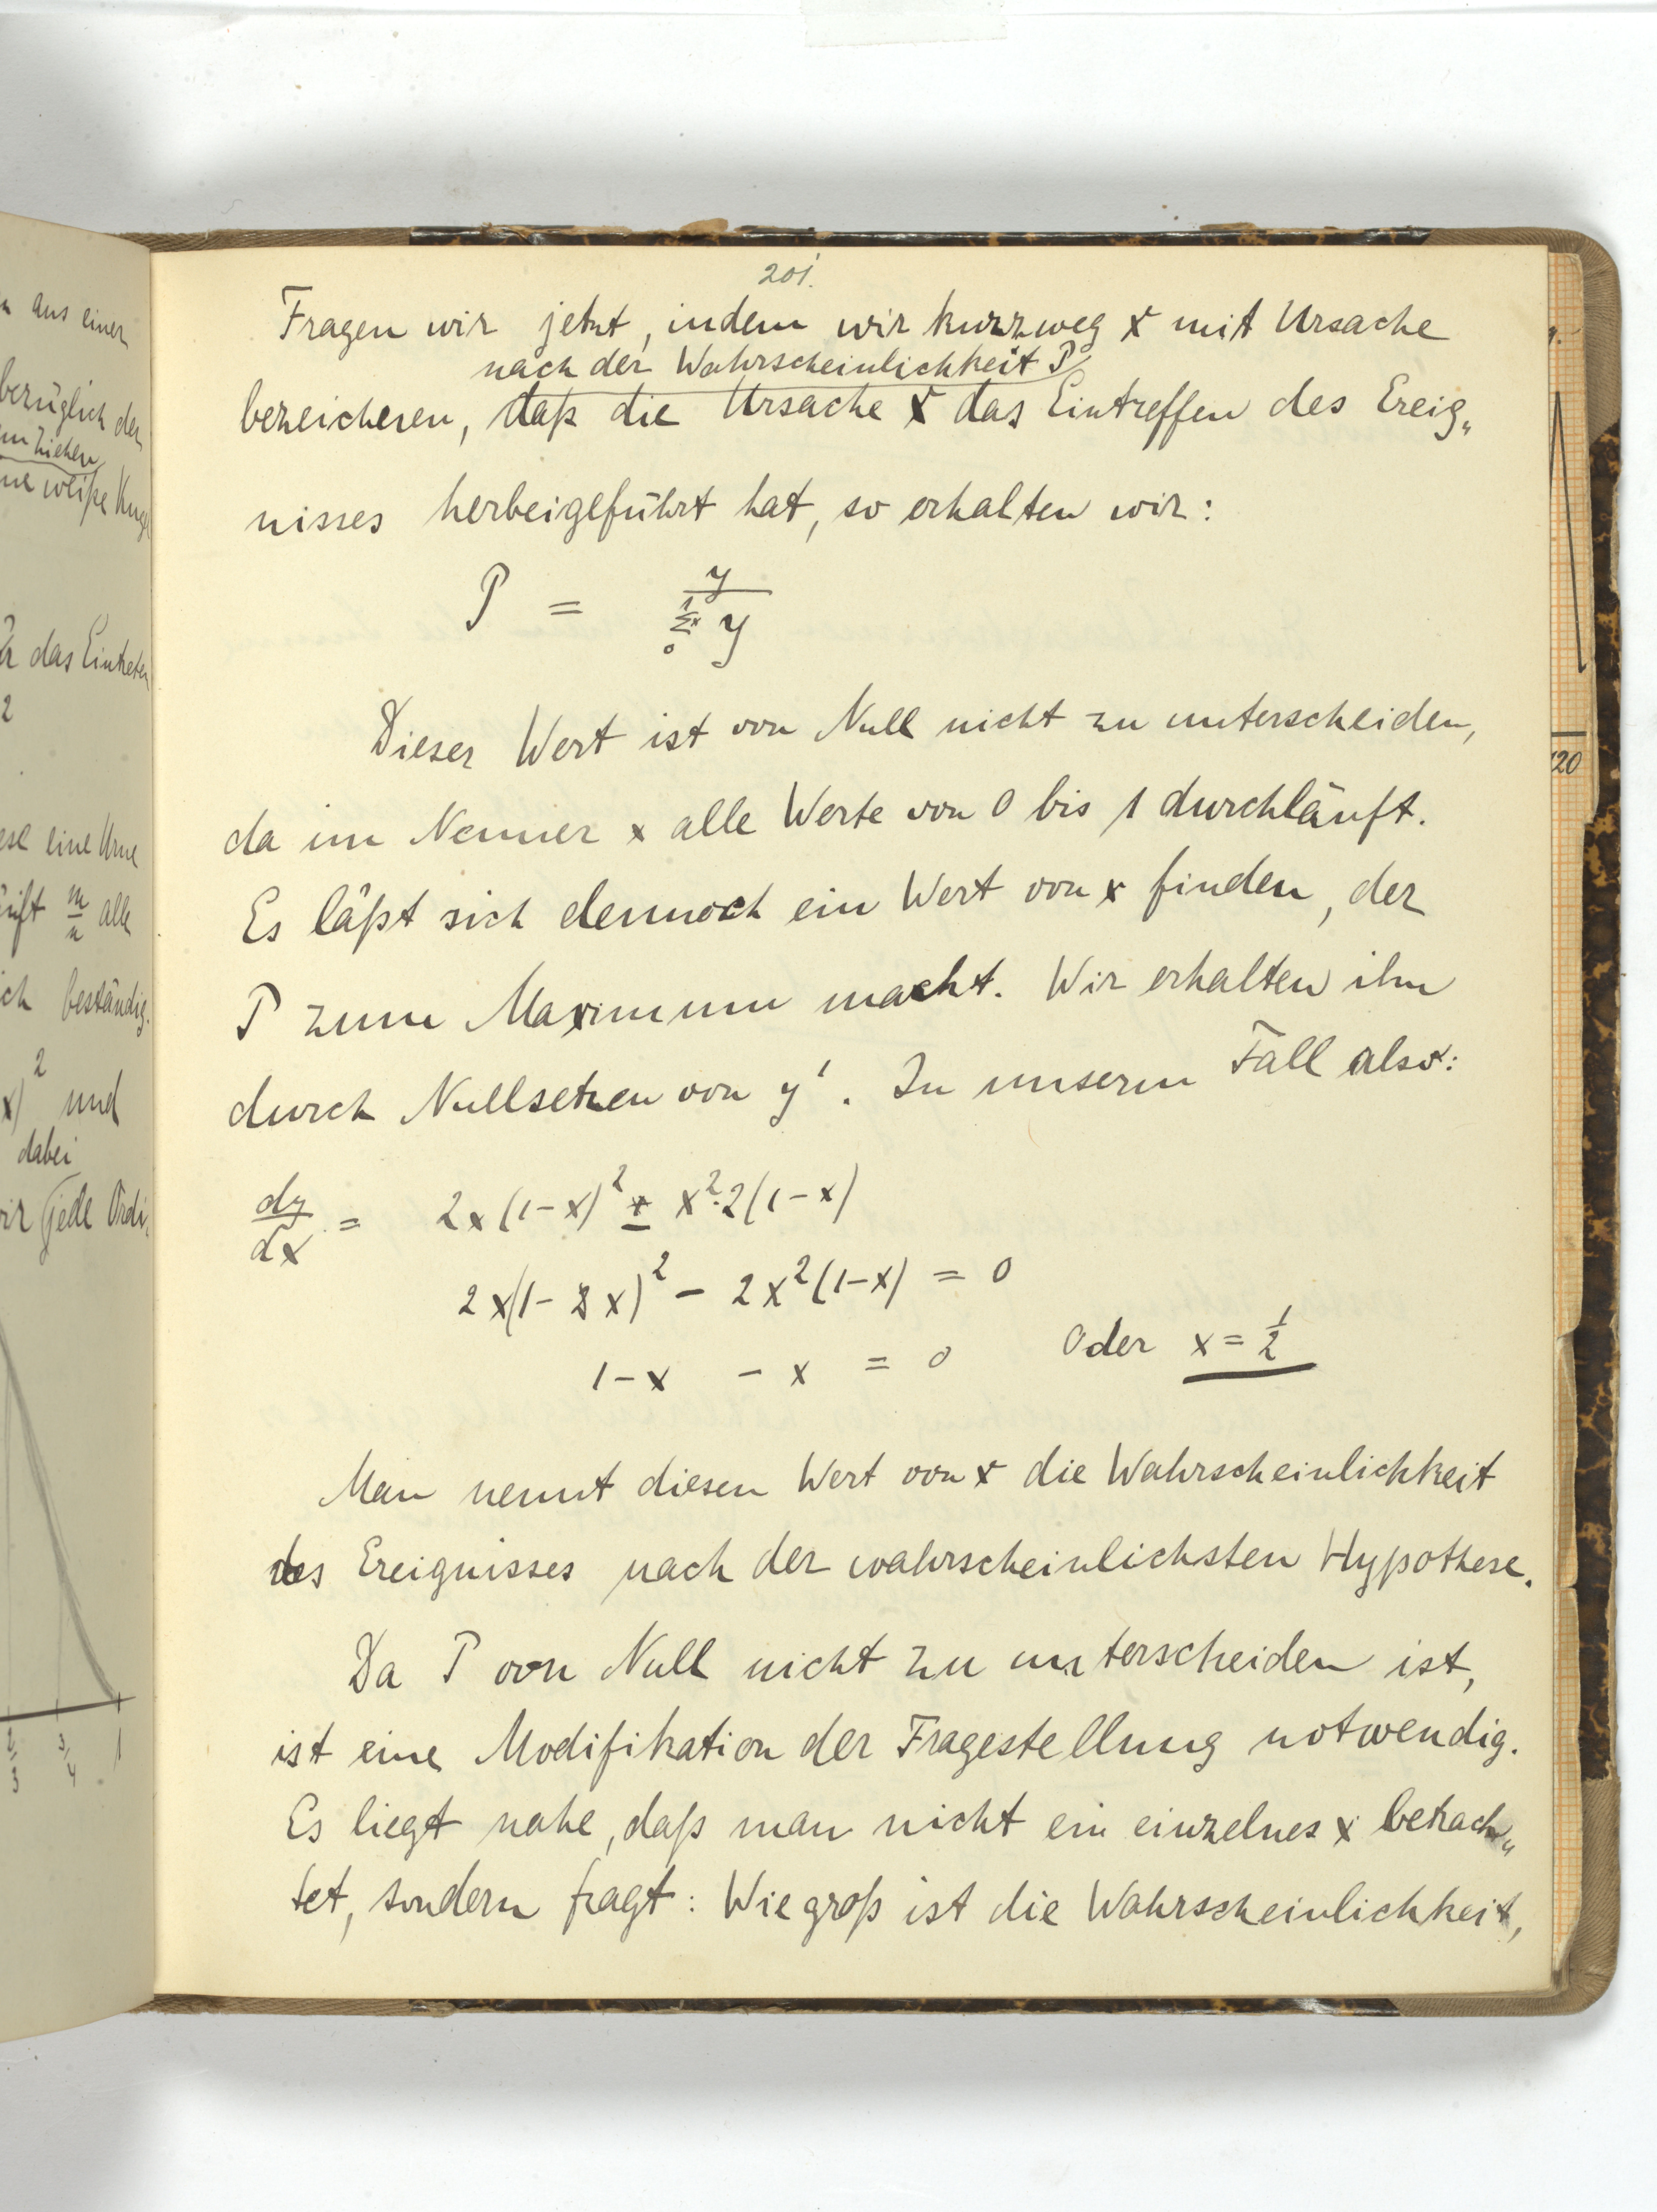 201.
Fragen wir jetzt, indem wir kurzweg x mit Ursache
nach der Wahrscheinlichkeit P
bezeichenen, daß die Ursache x das Eintreffen des Ereig„
nisses herbeigeführt hat, so erhalten wir:
P = y / 1 Σx 0 y
Dieser Wert ist von Null nicht zu unterscheiden,
da im Nenner x alle Werte von 0 bis 1 durchläuft.
Es läßt sich dennoch ein Wert von x finden, der
P zum Maximum macht. Wir erhalten ihn
durch Nullsetzen von y'. In unserm Fall also:
dy/dx = 2x(1-x)² ± x²·2(1-x)
2x(1-x)² - 2x²(1-x) = 0
1-x - x = 0 Oder x = 1/2
Man nennt diesen Wert von x die Wahrscheinlichkeit
des Ereignisses nach der wahrscheinlichsten Hypothese.
Da P von Null nicht zu unterscheiden ist,
ist eine Modifikation der Fragestellung notwendig.
Es liegt nahe, daß man nicht ein einzelnes x betrach„
tet, sondern fragt: Wie groß ist die Wahrscheinlichkeit,
aus einer
bezüglich der
ziehen
weiße Kug
das Eintreten
2
eine Urne
m/n alle
beständig.
x)² und
dabei
wir jede Ordi„
2/3 3/4 1
20